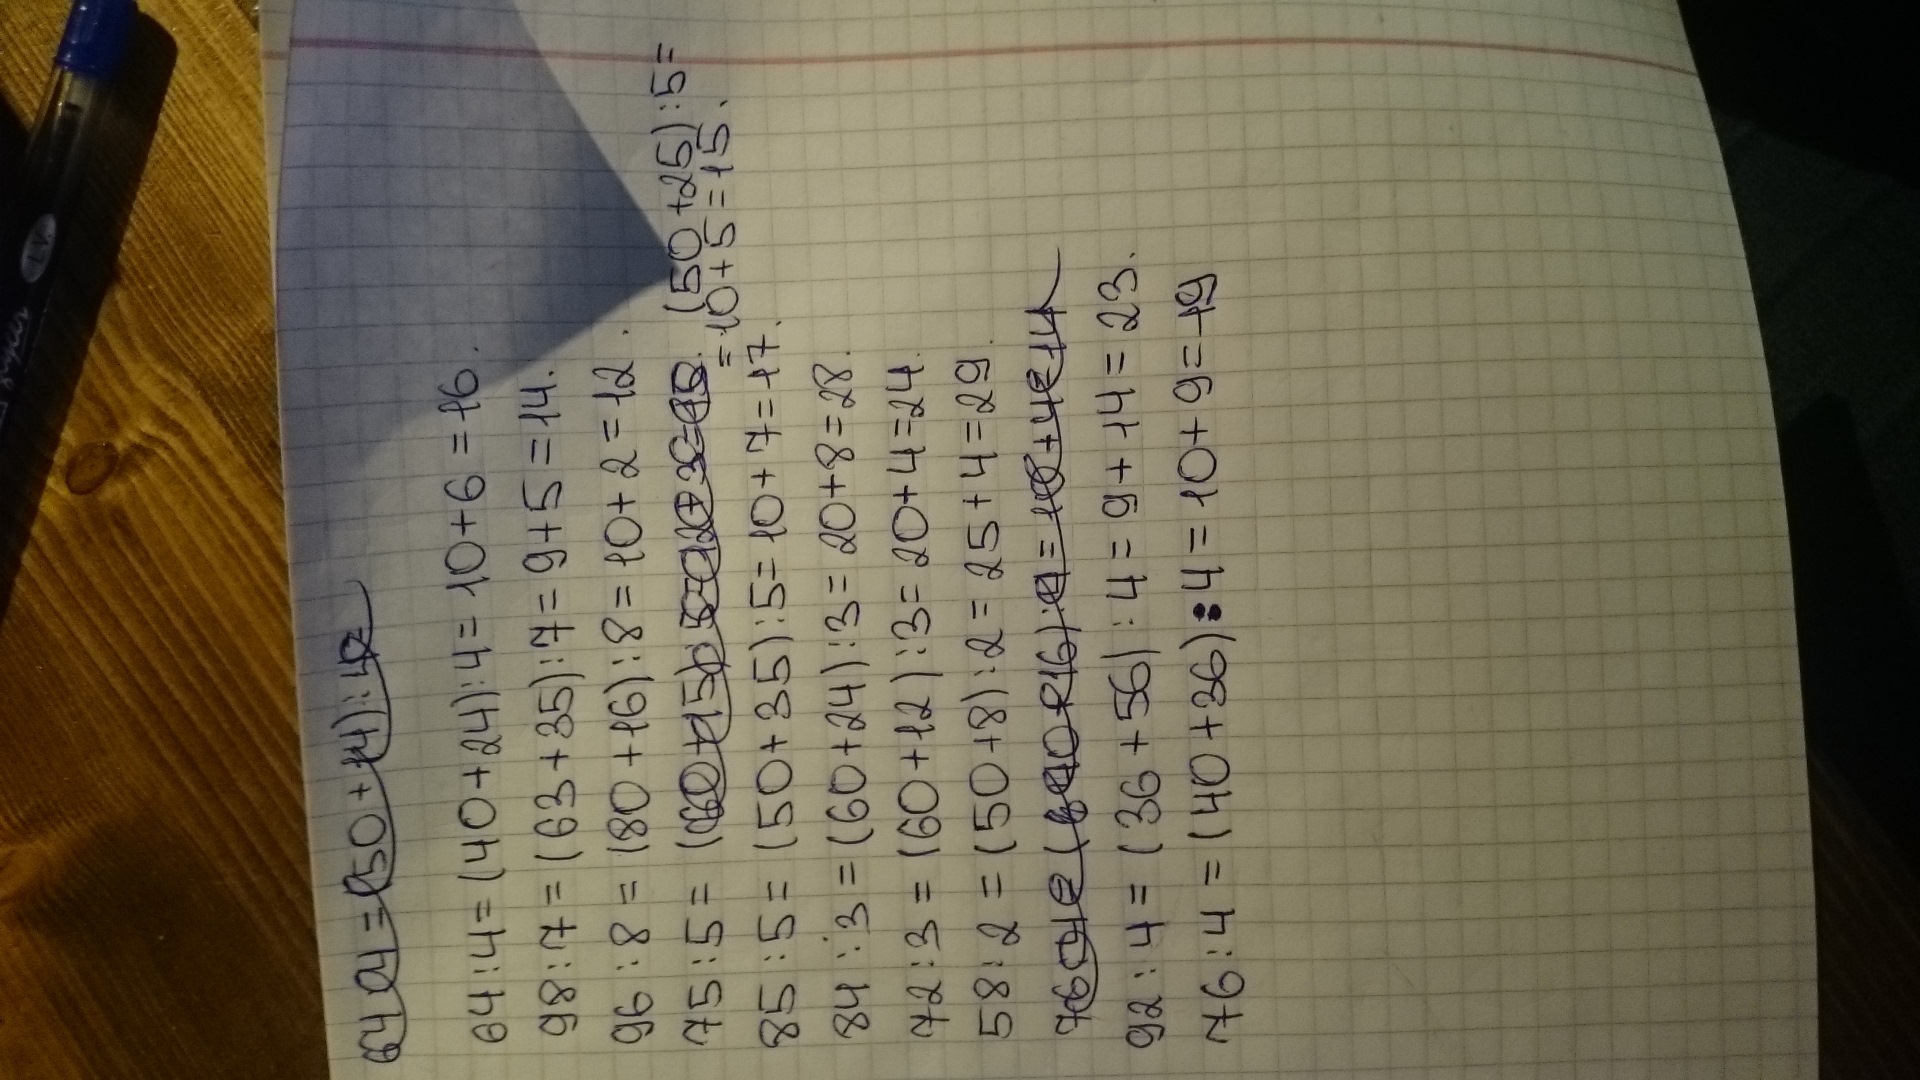 64:4=(50+14):4=
64:4=(40+24):4=10+6=16.
98:7=(63+35):7=9+5=14.
96:8=(80+16):8=10+2=12.
75:5= (50+25):5=
=10+5=15.
85:5=(50+35):5=10+7=17.
84:3=(60+24):3=20+8=28.
72:3=(60+12):3=20+4=24.
58:2=(50+8):2=25+4=29.
92:4=(36+56):4=9+14=23.
76:4=(40+36):4=10+9=19